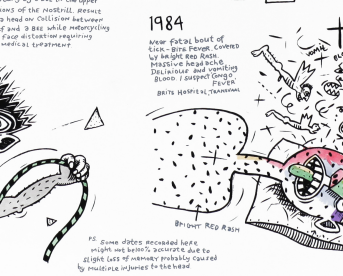 sions of the Nostrill. Result
a head on Collision between
f and a Bee while motorcycling
Face distortion requiring
medical treatment
1984
Near fatal bout of
tick-Bite Fever. Covered
by Bright Red Rash.
Massive headache
Delirious and vomiting
Blood / suspect Congo
Fever
Brits Hospital, Transvaal
vomit
Bright Red Rash
PS. Some dates recorded here
might not be 100% accurate due to
slight loss of memory probably caused
by multiple injuries to the head